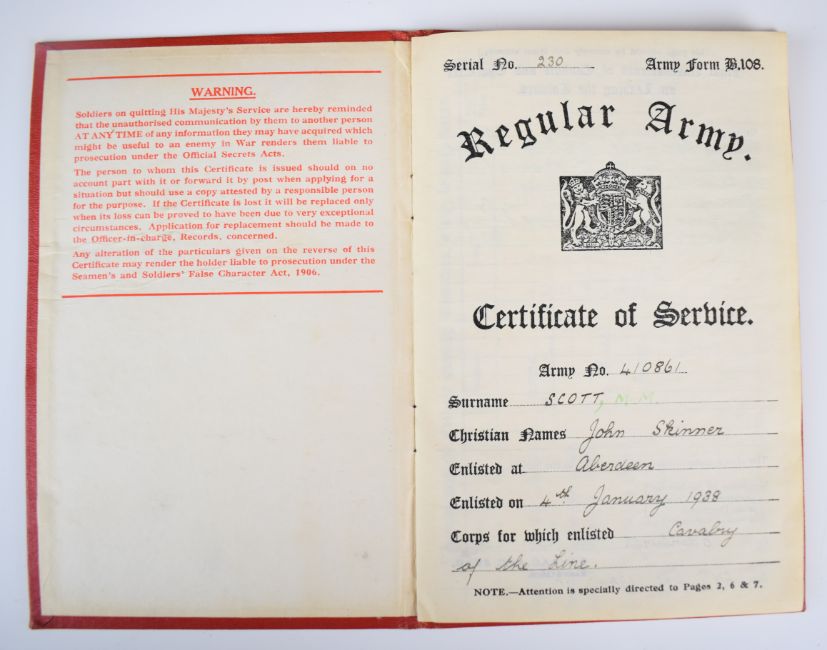 WARNING.
Soldiers on quitting His Majesty's Service are hereby reminded
that the unauthorised communication by them to another person
AT ANY TIME of any information they may have acquired which
might be useful to an enemy in War renders them liable to
prosecution under the Official Secrets Acts.
The person to whom this Certificate is issued should on no
account part with it or forward it by post when applying for a
situation but should use a copy attested by a responsible person
for the purpose. If the Certificate is lost it will be replaced only
when its loss can be proved to have been due to very exceptional
circumstances. Application for replacement should be made to
the Officer-in-charge, Records, concerned.
Any alteration of the particulars given on the reverse of this
Certificate may render the holder liable to prosecution under the
Seamen's and Soldiers' False Character Act, 1906.
Serial No. 230 Army Form B.108.
Regular Army.
Certificate of Service.
Army No. 410861
Surname SCOTT, M.M.
Christian Names John Skinner
Enlisted at Aberdeen
Enlisted on 4th January 1938
Corps for which enlisted Cavalry
of the Line.
NOTE.—Attention is specially directed to Pages 2, 6 & 7.